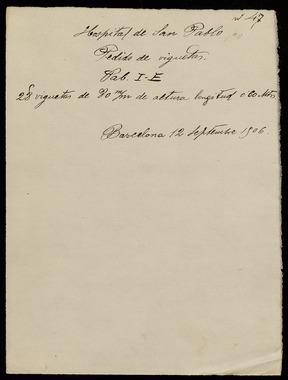 nº 47
Hospital de San Pablo
Pedido de viguetas.
Pab. I-E
28 viguetas de 80 m/m de altura longitud 0'60 Mts.
Barcelona 12 Septembre 1906.